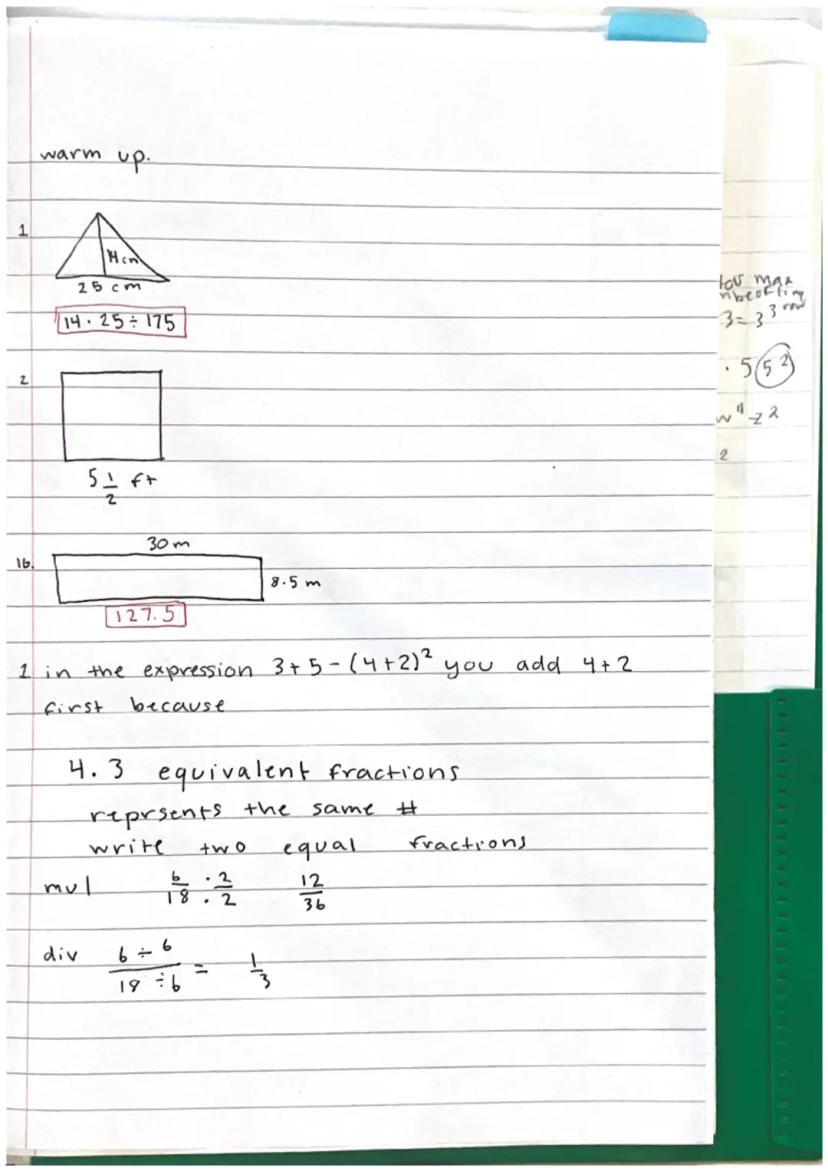 warm up.
1
14cm
25 cm
14 · 25 ÷ 175
2
5 1/2 ft
1b.
30 m
8.5 m
127.5
1 in the expression 3+5-(4+2)² you add 4+2
first because
4.3 equivalent fractions
reprsents the same #
write two equal fractions
mul 6/18 · 2/2 12/36
div 6÷6/18÷6 = 1/3
max
3 = 3³
· 5 5²
2